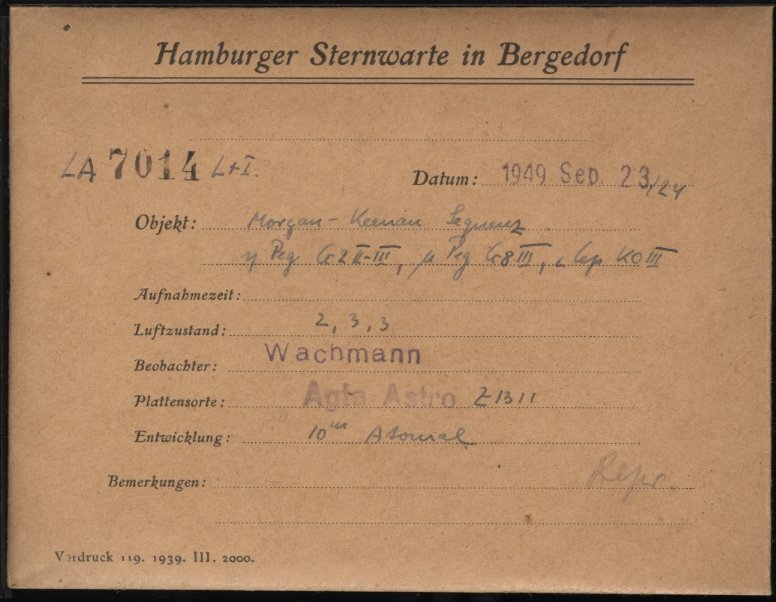 Hamburger Sternwarte in Bergedorf
LA 7014 L+I.
Datum: 1949 Sep. 23/24
Objekt: Morgan-Keenan Sequenz
η Peg G2 II-III, μ Peg G8 III, ι Cep K0 III
Aufnahmezeit:
Luftzustand: 2, 3, 3
Beobachter: Wachmann
Plattensorte: Agfa Astro Z 1311
Entwicklung: 10m Atomal
Bemerkungen: Repr.
Vordruck 119. 1939. III. 2000.